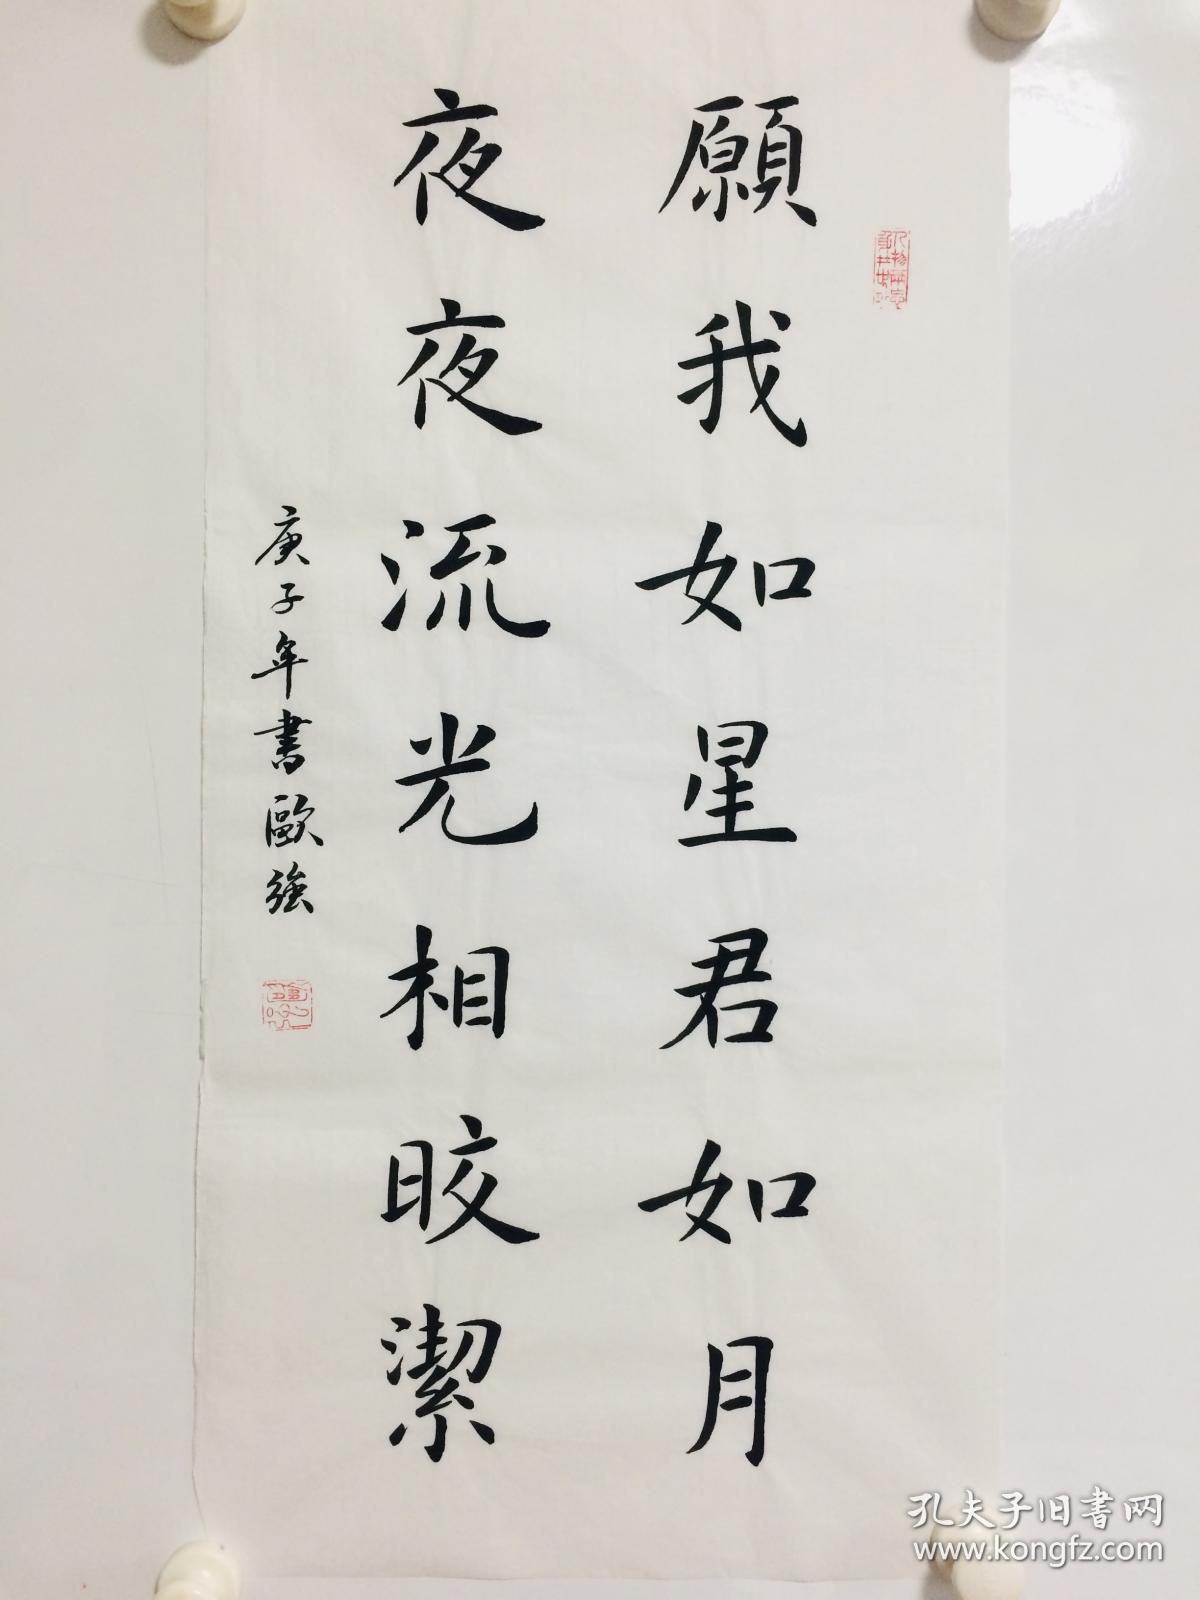 願我如星君如月
夜夜流光相晈潔
庚子年書歐強
孔夫子旧書网
www.kongfz.com